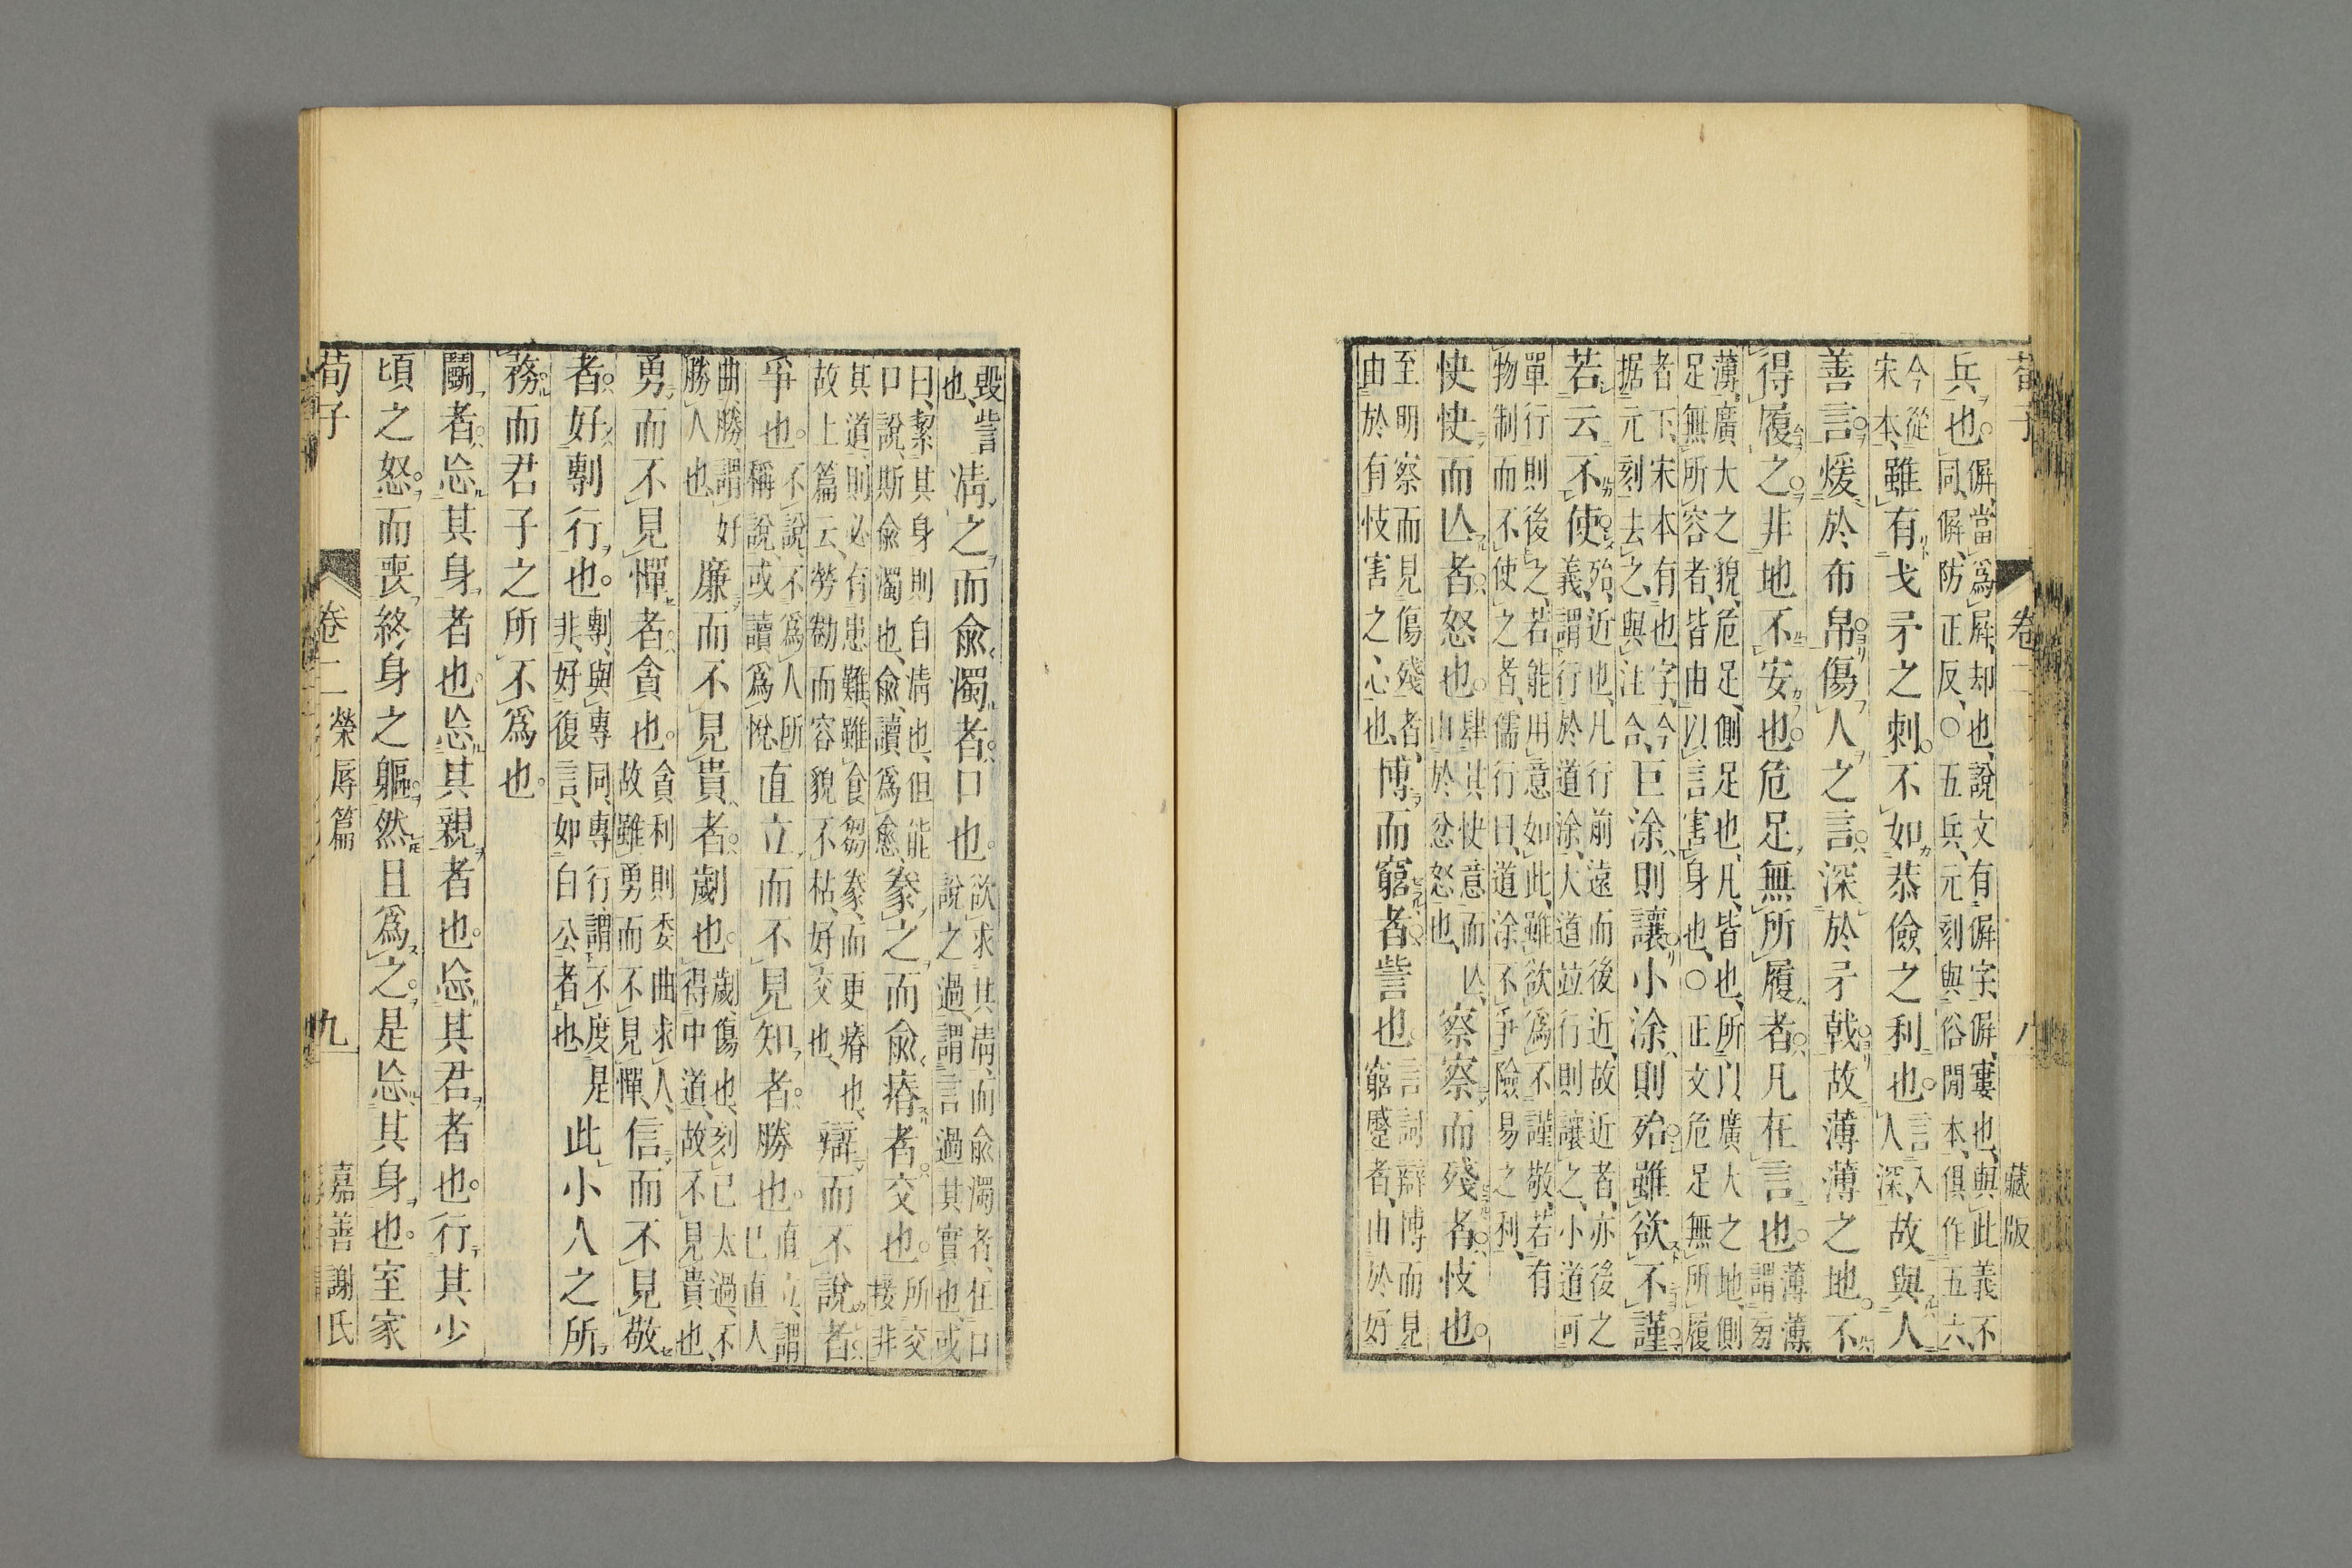 荀子 卷二 八 藏版
兵也。偋、當爲屛、却也、說文有偋字、偋、寠也、與此義不同、偋、防正反、○五兵、元刻與俗閒本、俱作五六、
今從宋本、雖有戈矛之刺。不如恭儉之利也。言入人深、故與人
善言。煖於布帛。傷人之言。深於矛戟。故薄薄之地。不
得履之。非地不安也。危足無所履者。凡在言也。薄薄謂旁
薄、廣大之貌、危足、側足也、凡、皆也、所門廣大之地、側足無所容者、皆由以言害身也、○正文危足無所履
者下、宋本有也字、今据元刻去之、與注合、巨涂則讓。小涂則殆。雖欲不謹
若云不使。殆、近也、凡行前遠而後近、故近者、亦後之義、謂行於道涂、大道竝行則讓之、小道可
單行則後之、若能用意如此、雖欲爲不謹敬、若有物制而不使之者、儒行曰、道涂不爭險易之利、
快快而亾者。怒也。肆其快意而亾、由於忿怒也、察察而殘者。忮也。
至明察而見傷殘者、由於有忮害之心也、博而窮者。訾也。言詞辯博而見窮蹙者、由於好
毀訾也、淸之而兪濁者。口也。欲求其淸、而兪濁者、在口說之過、謂言過其實也、或
曰、絜其身則自淸也、但能口說、斯兪濁也、兪、讀爲愈、豢之而兪瘠者。交也。所交接非
其道、則必有患難、雖食芻豢、而更瘠也、故上篇云、勞勌而容貌不枯、好交也、辯而不說者。
爭也。不說、不爲人所稱說、或讀爲悅、直立而不見知者。勝也。直立、謂已直人
曲勝、謂好勝人也、廉而不見貴者。劌也。劌、傷也、刻已太過、不得中道、故不見貴也、
勇而不見憚者。貪也。貪利則委曲求人、故雖勇而不見憚、信而不見敬
者。好剸行也。剸、與專同、專行、謂不度是非、好復言、如白公者也、此小人之所
務。而君子之所不爲也。
鬭者。忘其身者也。忘其親者也。忘其君者也。行其少
頃之怒。而喪終身之軀。然且爲之。是忘其身也。室家
荀子 卷二 榮辱篇 九 嘉善謝氏